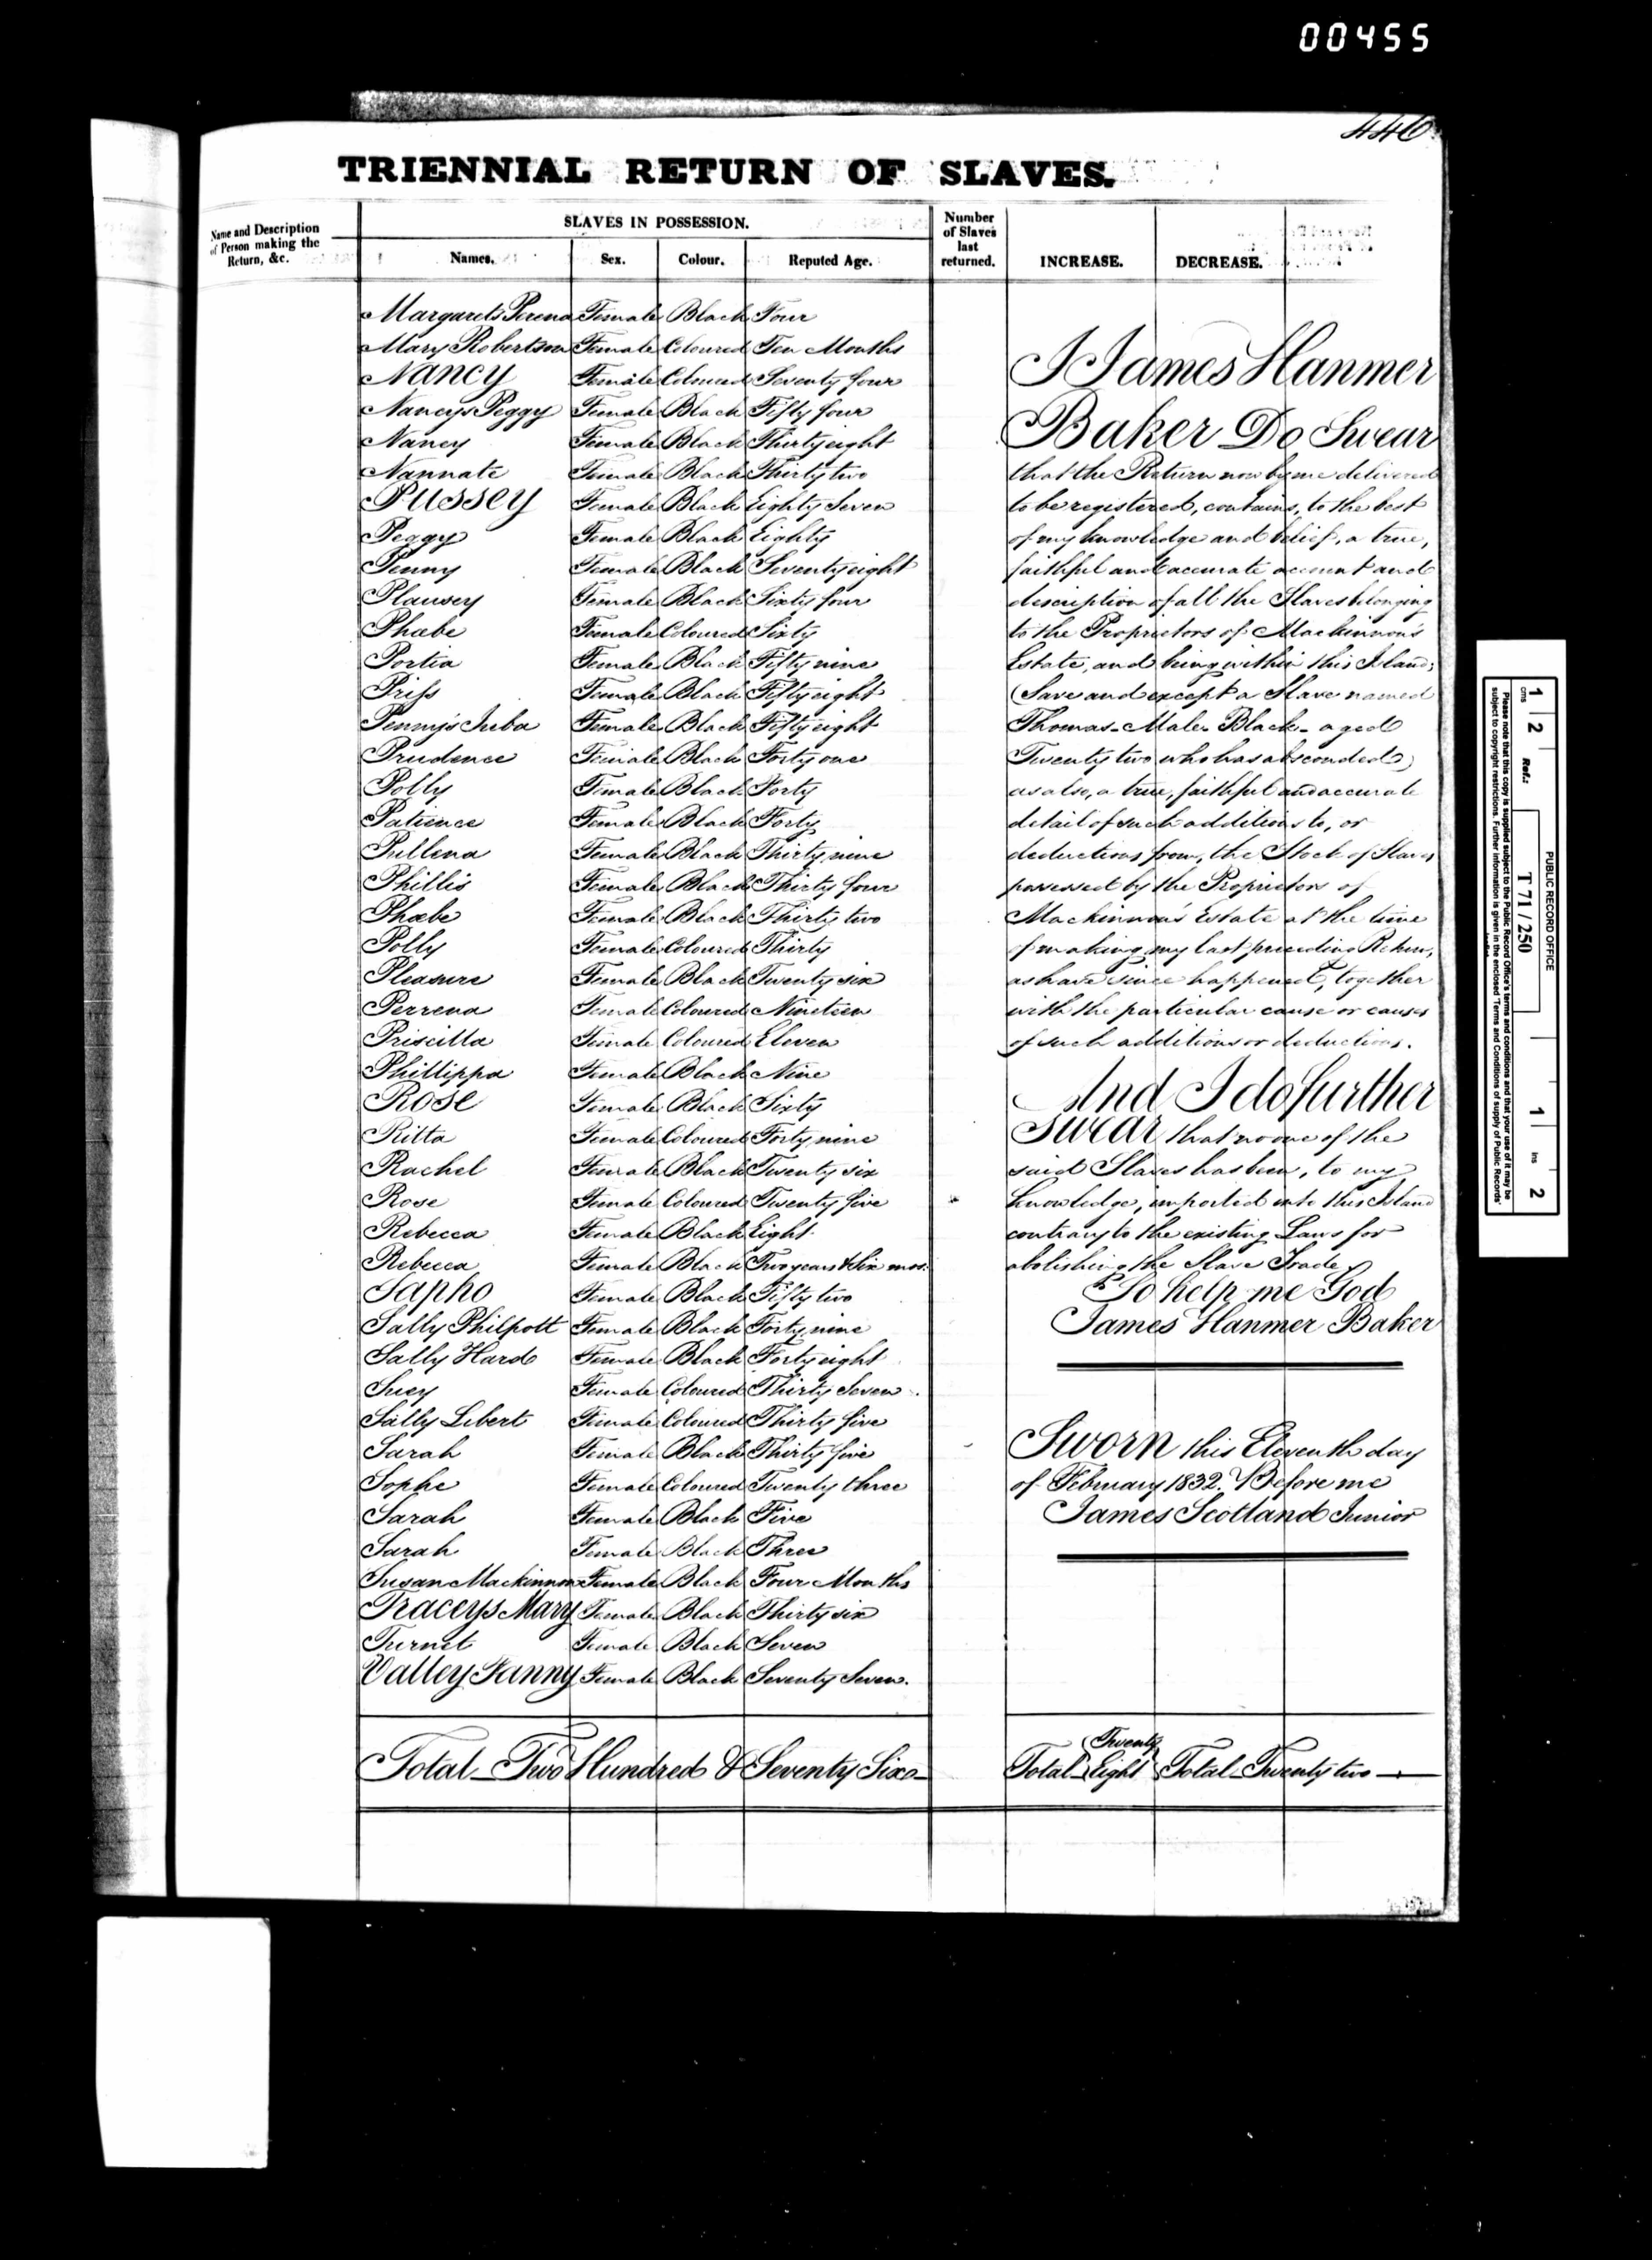 00455
446.
TRIENNIAL RETURN OF SLAVES.
Name and Description
of Person making the
Return, &c.
SLAVES IN POSSESSION.
Names.
Sex.
Colour.
Reputed Age.
Number
of Slaves
last
returned.
INCREASE.
DECREASE.
Margarets Perena Female Black Four
Mary Robertson Female Coloured Ten Months
Nancy Female Coloured Seventy four
Nancys Peggy Female Black Fifty four
Nancy Female Black Thirty eight
Nannate Female Black Thirty two
Pussey Female Black Eighty Seven
Peggy Female Black Eighty
Penny Female Black Seventy eight
Plausey Female Black Sixty four
Phœbe Female Coloured Sixty
Portia Female Black Fifty nine
Priss Female Black Fifty eight
Penny's Juba Female Black Fifty eight
Prudence Female Black Forty one
Polly Female Black Forty
Patience Female Black Forty
Pullena Female Black Thirty nine
Phillis Female Black Thirty four
Phœbe Female Black Thirty two
Polly Female Coloured Thirty
Pleasure Female Black Twenty six
Perrena Female Coloured Nineteen
Priscilla Female Coloured Eleven
Phillippa Female Black Nine
Rose Female Black Sixty
Ritta Female Coloured Forty nine
Rachel Female Black Twenty six
Rose Female Coloured Twenty five
Rebecca Female Black Eight
Rebecca Female Black Two years & Six mos.
Sapho Female Black Fifty two
Sally Philpott Female Black Forty nine
Sally Hard Female Black Forty eight
Sucy Female Coloured Thirty Seven
Sally Libert Female Coloured Thirty five
Sarah Female Black Thirty five
Sophe Female Coloured Twenty three
Sarah Female Black Five
Sarah Female Black Three
Susan Mackinnon Female Black Four Months
Traceys Mary Female Black Thirty six
Turnet Female Black Seven
Valley Fanny Female Black Seventy Seven.
Total Two Hundred & Seventy Six
I James Hanmer
Baker Do Swear
that the Return now by me delivered
to be registered, contains, to the best
of my knowledge and belief, a true,
faithful and accurate account and
description of all the Slaves belonging
to the Proprietors of Mackinnon's
Estate, and being within this Island;
(Save and except a Slave named
Thomas - Male - Black - aged
Twenty two who has absconded)
as also, a true, faithful and accurate
detail of such additions to, or
deductions from, the Stock of Slaves
possessed by the Proprietors of
Mackinnon's Estate at the time
of making my last preceding Return,
as have since happened, together
with the particular cause or causes
of such additions or deductions.
And I do further
Swear that no one of the
said Slaves has been, to my
knowledge, imported into this Island
contrary to the existing Laws for
abolishing the Slave Trade
So help me God
James Hanmer Baker
Sworn this Eleventh day
of February 1832. Before me
James Scotland Junior
Total Twenty Eight Total Twenty two
PUBLIC RECORD OFFICE
Ref.: T 71 / 250
1 2 cms
1 ins 2
Please note that this copy is supplied subject to the Public Record Office's terms and conditions and that your use of it may be
subject to copyright restrictions. Further information is given in the enclosed 'Terms and Conditions of supply of Public Records'